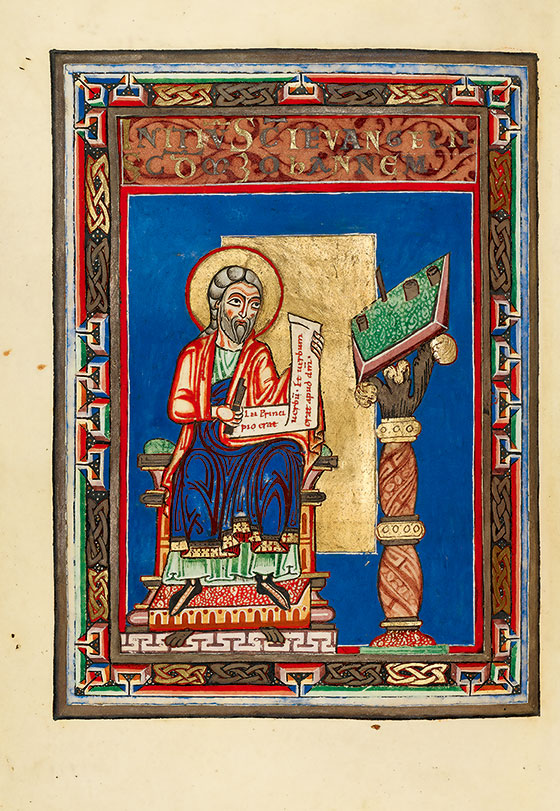 INITIŪ SC̄I EVANGELII
SCDM IOhANNEM
In Princi
pio erat
uerbū · Et uerbum
erat apud dm̄ ·